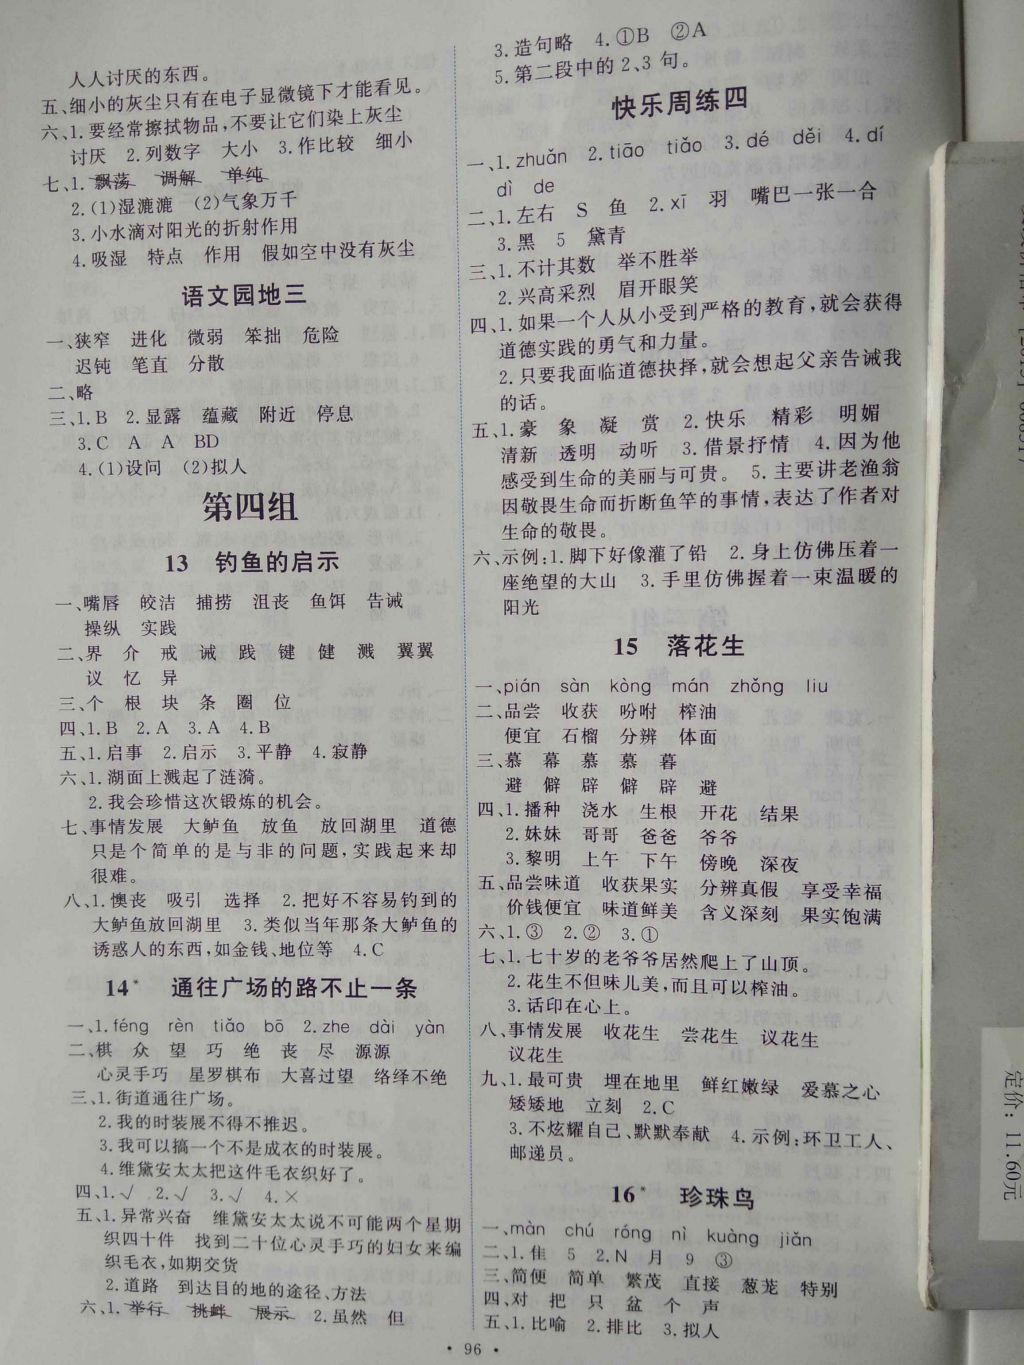 人人讨厌的东西。
五、细小的灰尘只有在电子显微镜下才能看见。
六、1.要经常擦拭物品,不要让它们染上灰尘
讨厌 2.列数字 大小 3.作比较 细小
七、1.飘荡 调解 单纯
2.(1)湿漉漉 (2)气象万千
3.小水滴对阳光的折射作用
4.吸湿 特点 作用 假如空中没有灰尘
语文园地三
一、狭窄 进化 微弱 笨拙 危险
迟钝 笔直 分散
二、略
三、1.B 2.显露 蕴藏 附近 停息
3.C A A BD
4.(1)设问 (2)拟人
第四组
13 钓鱼的启示
一、嘴唇 皎洁 捕捞 沮丧 鱼饵 告诫
操纵 实践
二、界 介 戒 诫 践 键 健 溅 翼翼
议 忆 异
三、个 根 块 条 圈 位
四、1.B 2.A 3.A 4.B
五、1.启事 2.启示 3.平静 4.寂静
六、1.湖面上溅起了涟漪。
2.我会珍惜这次锻炼的机会。
七、事情发展 大鲈鱼 放鱼 放回湖里 道德
只是个简单的是与非的问题,实践起来却
很难。
八、1.懊丧 吸引 选择 2.把好不容易钓到的
大鲈鱼放回湖里 3.类似当年那条大鲈鱼的
诱惑人的东西,如金钱、地位等 4.C
14* 通往广场的路不止一条
一、1.féng rèn tiǎo bō 2.zhe dài yàn
二、棋 众 望 巧 绝 丧 尽 源源
心灵手巧 星罗棋布 大喜过望 络绎不绝
三、1.街道通往广场。
2.我的时装展不得不推迟。
3.我可以搞一个不是成衣的时装展。
4.维黛安太太把这件毛衣织好了。
四、1.√ 2.√ 3.√ 4.×
五、1.异常兴奋 维黛安太太说不可能两个星期
织四十件 找到二十位心灵手巧的妇女来编
织毛衣,如期交货
2.道路 到达目的地的途径、方法
六、1.举行 挑衅 展示 2.虽然 但
3.造句略 4.①B ②A
5.第二段中的2、3句。
快乐周练四
一、1.zhuǎn 2.tiāo tiǎo 3.dé děi 4.dí
dì de
二、1.左右 S 鱼 2.xī 羽 嘴巴一张一合
3.黑 5 黛青
三、1.不计其数 举不胜举
2.兴高采烈 眉开眼笑
四、1.如果一个人从小受到严格的教育,就会获得
道德实践的勇气和力量。
2.只要我面临道德抉择,就会想起父亲告诫我
的话。
五、1.豪 象 凝 赏 2.快乐 精彩 明媚
清新 透明 动听 3.借景抒情 4.因为他
感受到生命的美丽与可贵。 5.主要讲老渔翁
因敬畏生命而折断鱼竿的事情,表达了作者对
生命的敬畏。
六、示例:1.脚下好像灌了铅 2.身上仿佛压着一
座绝望的大山 3.手里仿佛握着一束温暖的
阳光
15 落花生
一、pián sàn kòng mán zhǒng liu
二、品尝 收获 吩咐 榨油
便宜 石榴 分辨 体面
三、慕 幕 慕 慕 暮
避 僻 辟 僻 辟 避
四、1.播种 浇水 生根 开花 结果
2.妹妹 哥哥 爸爸 爷爷
3.黎明 上午 下午 傍晚 深夜
五、品尝味道 收获果实 分辨真假 享受幸福
价钱便宜 味道鲜美 含义深刻 果实饱满
六、1.③ 2.② 3.①
七、1.七十岁的老爷爷居然爬上了山顶。
2.花生不但味儿美,而且可以榨油。
3.话印在心上。
八、事情发展 收花生 尝花生 议花生
议花生
九、1.最可贵 埋在地里 鲜红嫩绿 爱慕之心
矮矮地 立刻 2.C
3.不炫耀自己、默默奉献 4.示例:环卫工人、
邮递员。
16* 珍珠鸟
一、màn chú róng nì kuàng jiǎn
二、1.佳 5 2.N 月 9 ③
三、简便 简单 繁茂 直接 葱茏 特别
四、对 把 只 盆 个 声
五、1.比喻 2.排比 3.拟人
• 96 •
定价:11.60元